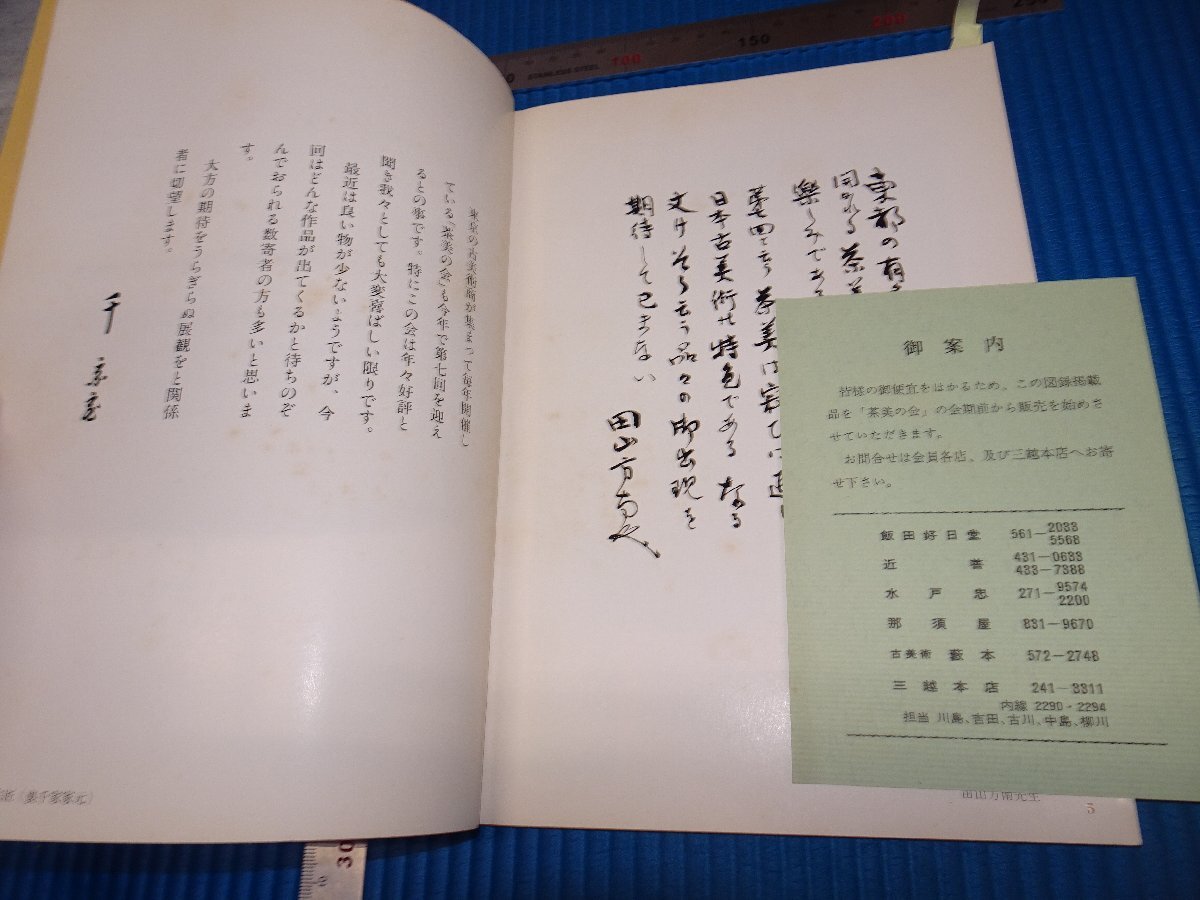 東京の古美術商が集まって毎年開催し
ている「茶美の会」も今年で第七回を迎え
るとの事です。特にこの会は年々好評と
聞き我々としても大変喜ばしい限りです。
最近は良い物が少ないようですが、今
回はどんな作品が出てくるかと待ちのぞ
んでおられる数寄者の方も多いと思いま
す。
大方の期待をうらぎらぬ展観をと関係
者に切望します。
千
(裏千家家元)
東都の有
開かれる茶美
楽しみである
第七回
日本古美術の特色である
品々の御出現を
期待して已まない
田山方南
田山方南先生
5
御案内
皆様の御便宜をはかるため、この図録掲載
品を「茶美の会」の会期前から販売を始めさ
せていただきます。
お問合せは会員各店、及び三越本店へお寄
せ下さい。
飯田好日堂 561-2033
5568
近善 431-0633
433-7388
水戸忠 271-9574
2200
那須屋 831-9670
古美術 藪本 572-2748
三越本店 241-3311
内線 2290・2294
担当 川島、吉田、古川、中島、柳川
100
STAINLESS STEEL
150
200
250
30